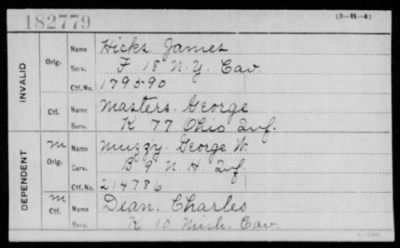 182779
(3—11—4)
INVALID
Orig. Name Hicks James
Serv. F 18 N.Y. Cav.
Ctf. No. 179590
Ctf. Name Masters George
Serv. K 77 Ohio Inf.
DEPENDENT
M Orig. Name Muzzy George W.
Serv. B 9 N H Inf
Ctf. No. 214786
M Ctf. Name Dean, Charles
Serv. K 10 Mich. Cav.